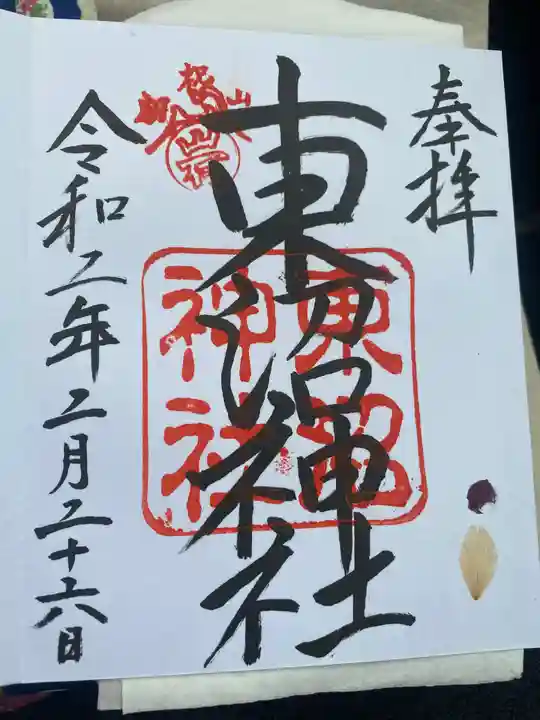 奉拝
東沼神社
東沼
神社
令和二年二月二十六日